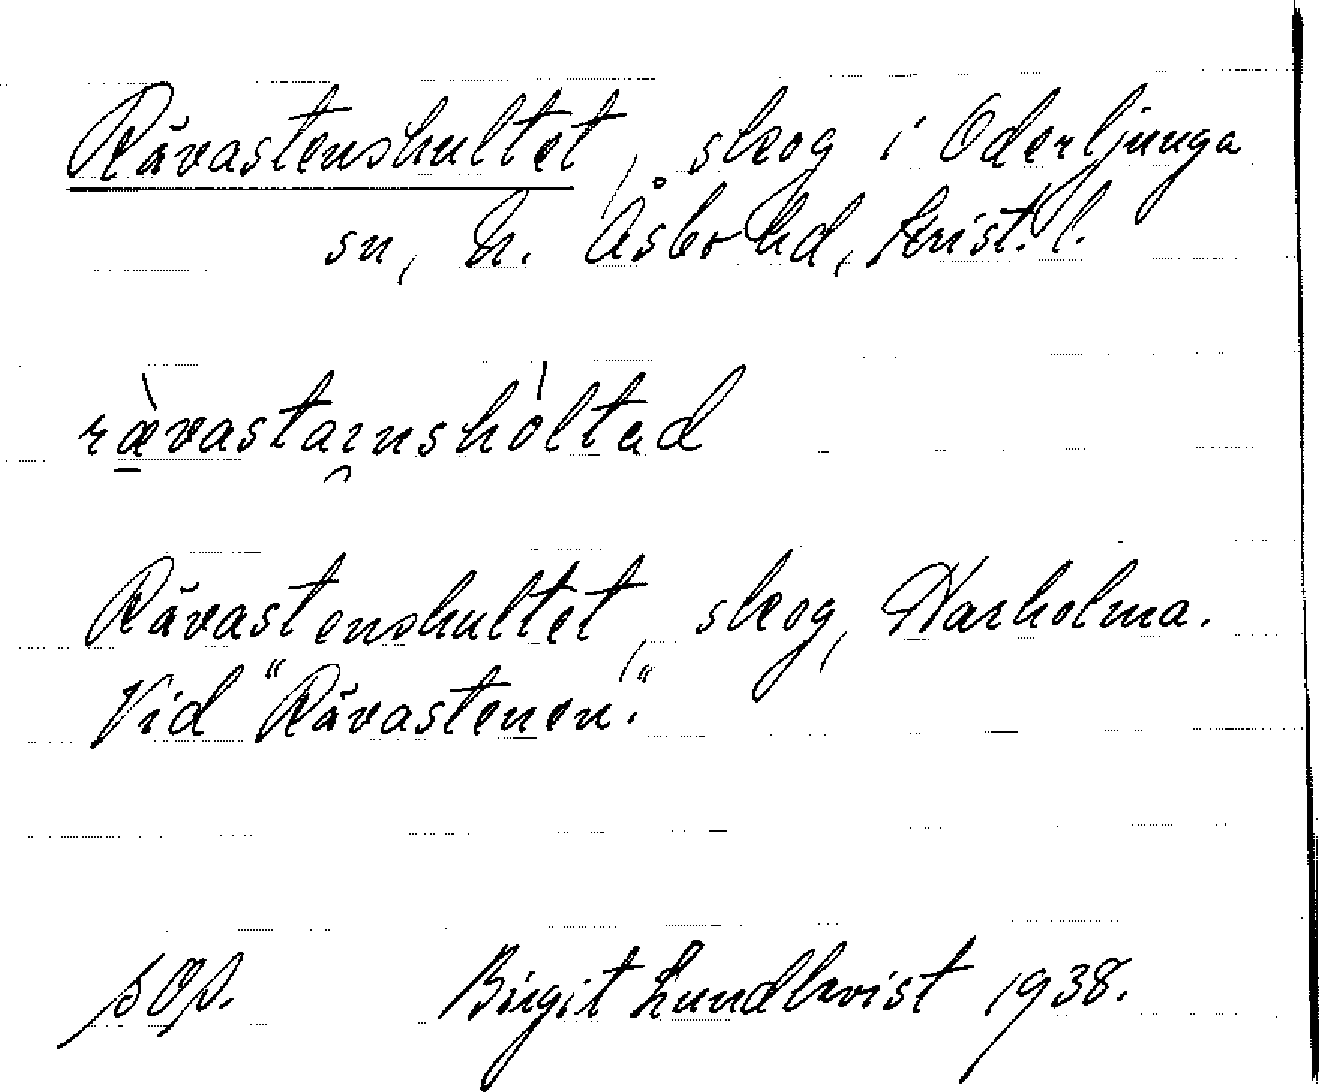 Rävastenshultet, skog i Oderljunga
sn, N. Åsbo hd, Krist. l.
rævastainshòltad
Rävastenshultet, skog, Varholma.
Vid "Rävastenen."
Birgit Lundkvist 1938.